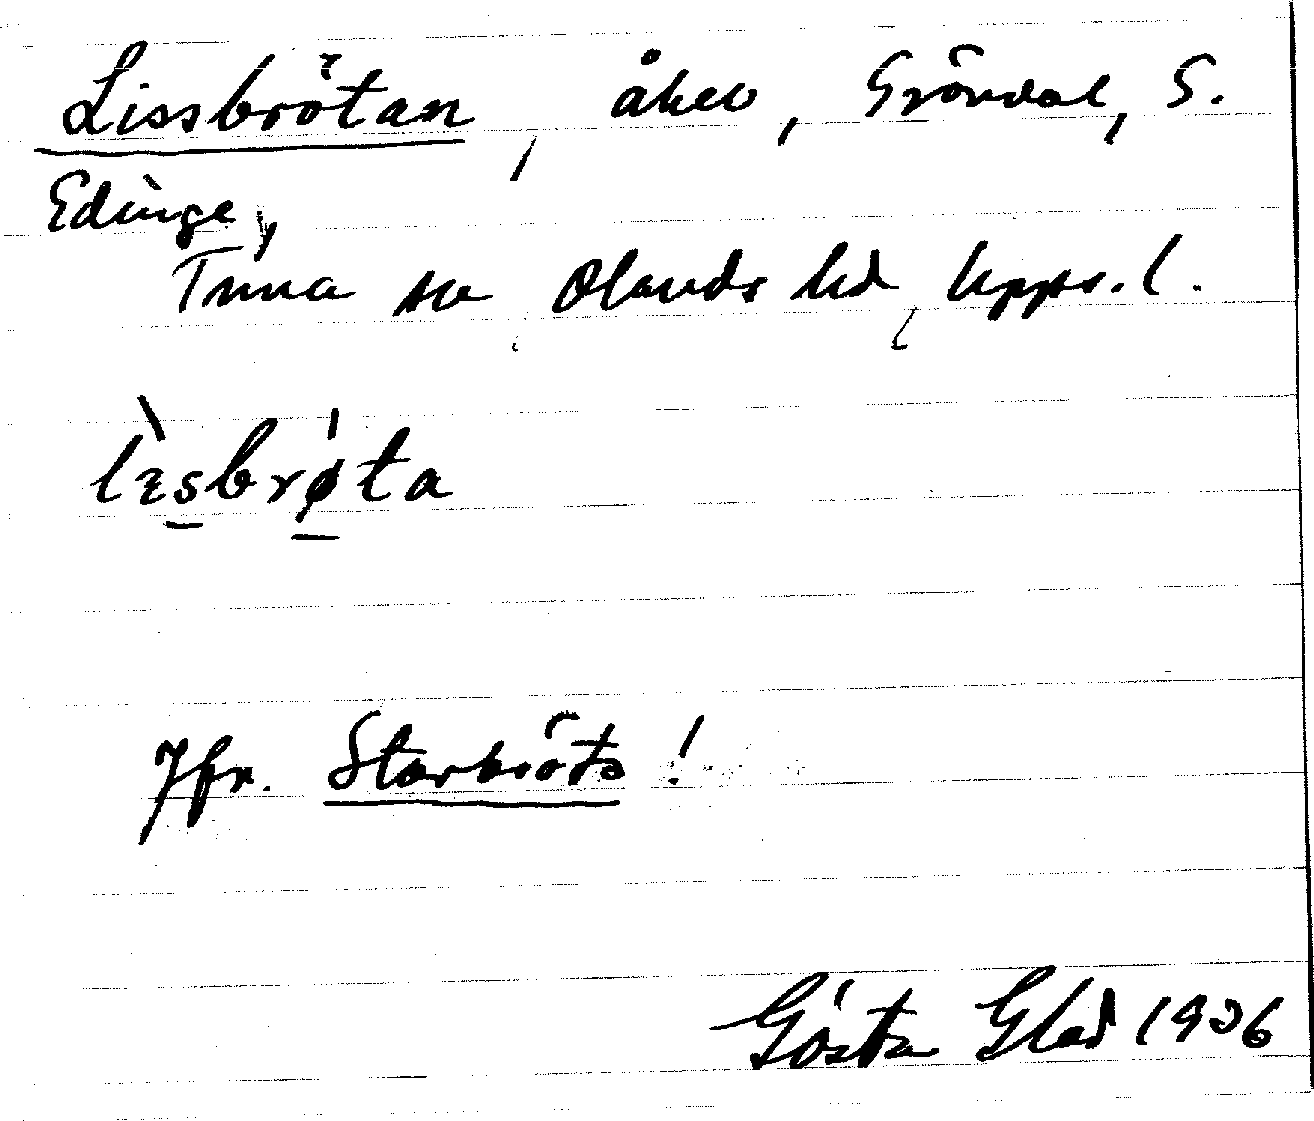 Lissbrötan, åker, Gröndal, S.
Edinge,
Tuna sn Olands hd Upps. l.
lɪ̀sbrøta
Jfr. Storbröta!
Gösta Glad 1936